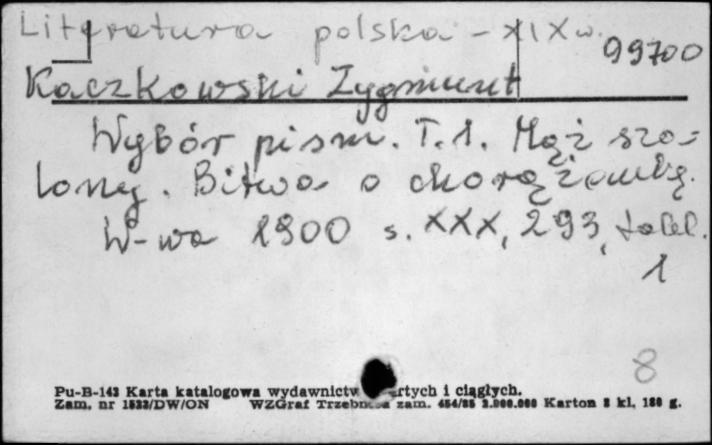 Literatura polska - XIX w.
99700
Kaczkowski Zygmunt
Wybór pism. T.1. Mąż sza-
lony. Bitwa o chorążankę.
W-wa 1900 s. XXX, 293, tabl.
1
8
Pu-B-143 Karta katalogowa wydawnictw ciągłych.
Zam. nr 1532/DW/ON WZGraf Trzebnica zam. Karton 2 kl. 180 g.